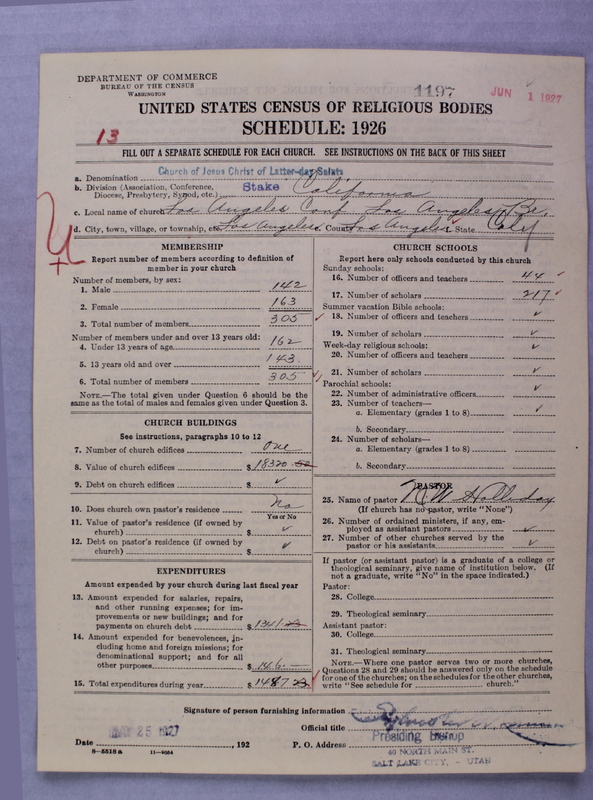 DEPARTMENT OF COMMERCE
BUREAU OF THE CENSUS
WASHINGTON
1197
JUN 1 1927
UNITED STATES CENSUS OF RELIGIOUS BODIES
13
SCHEDULE: 1926
FILL OUT A SEPARATE SCHEDULE FOR EACH CHURCH. SEE INSTRUCTIONS ON THE BACK OF THIS SHEET
a. Denomination Church of Jesus Christ of Latter-day Saints
b. Division (Association, Conference, Diocese, Presbytery, Synod, etc.) Stake California
c. Local name of church Los Angeles Conf Los Angeles Br.
d. City, town, village, or township, etc. Los Angeles County Los Angeles State Calif
MEMBERSHIP
Report number of members according to definition of
member in your church
Number of members, by sex:
1. Male 142
2. Female 163
3. Total number of members 305
Number of members under and over 13 years old:
4. Under 13 years of age 162
5. 13 years old and over 143
6. Total number of members 305
NOTE.—The total given under Question 6 should be the
same as the total of males and females given under Question 3.
CHURCH BUILDINGS
See instructions, paragraphs 10 to 12
7. Number of church edifices One
8. Value of church edifices $ 18320
9. Debt on church edifices $ ✓
10. Does church own pastor's residence No
Yes or No
11. Value of pastor's residence (if owned by
church) $ ✓
12. Debt on pastor's residence (if owned by
church) $ ✓
EXPENDITURES
Amount expended by your church during last fiscal year
13. Amount expended for salaries, repairs,
and other running expenses; for im-
provements or new buildings; and for
payments on church debt $ 1341
14. Amount expended for benevolences, in-
cluding home and foreign missions; for
denominational support; and for all
other purposes $ 146.—
15. Total expenditures during year $ 1487
CHURCH SCHOOLS
Report here only schools conducted by this church
Sunday schools:
16. Number of officers and teachers 44 ✓
17. Number of scholars 217 ✓
Summer vacation Bible schools:
18. Number of officers and teachers ✓
19. Number of scholars ✓
Week-day religious schools:
20. Number of officers and teachers ✓
21. Number of scholars ✓
Parochial schools:
22. Number of administrative officers ✓
23. Number of teachers—
a. Elementary (grades 1 to 8) ✓
b. Secondary
24. Number of scholars—
a. Elementary (grades 1 to 8)
b. Secondary
PASTOR
25. Name of pastor Holliday
(If church has no pastor, write "None")
26. Number of ordained ministers, if any, em-
ployed as assistant pastors ✓
27. Number of other churches served by the
pastor or his assistants ✓
If pastor (or assistant pastor) is a graduate of a college or
theological seminary, give name of institution below. (If
not a graduate, write "No" in the space indicated.)
Pastor:
28. College
29. Theological seminary
Assistant pastor:
30. College
31. Theological seminary
NOTE.—Where one pastor serves two or more churches,
Questions 28 and 29 should be answered only on the schedule
for one of the churches; on the schedules for the other churches,
write "See schedule for church."
Signature of person furnishing information
Official title Presiding Bishop
MAY 25 1927
Date , 192 P. O. Address 40 NORTH MAIN ST.
SALT LAKE CITY, - UTAH
8—5518a 11—9054